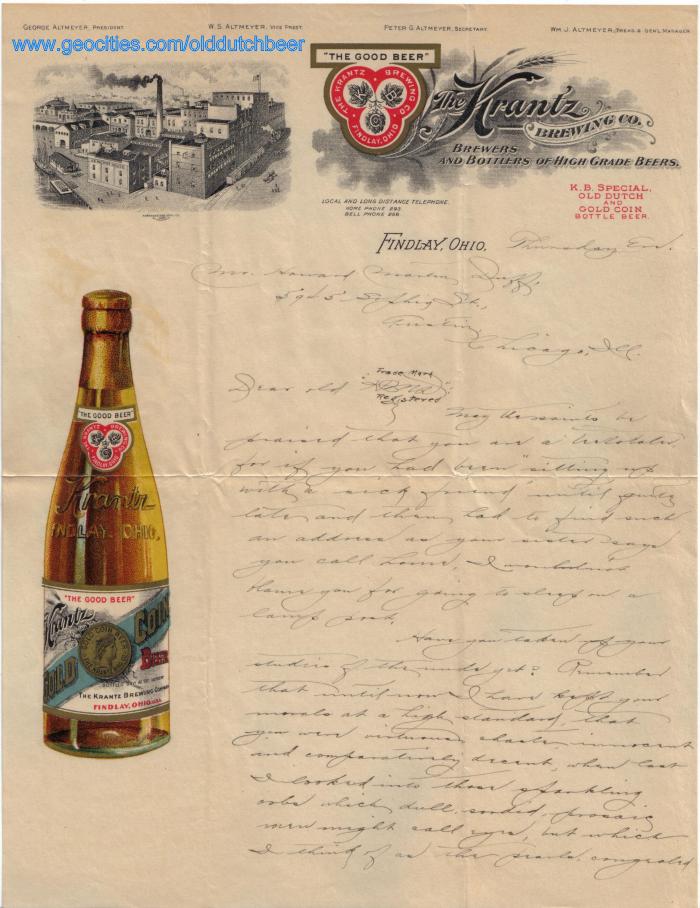 GEORGE ALTMEYER, PRESIDENT.
W. S. ALTMEYER, VICE PREST.
PETER G. ALTMEYER, SECRETARY.
WM J. ALTMEYER, TREAS. & GENL MANAGER.
www.geocities.com/olddutchbeer
"THE GOOD BEER"
THE KRANTZ BREWING CO.
FINDLAY, OHIO
The Krantz
BREWING CO.
BREWERS
AND BOTTLERS OF HIGH GRADE BEERS.
LOCAL AND LONG DISTANCE TELEPHONE.
HOME PHONE 293
BELL PHONE 268
K. B. SPECIAL,
OLD DUTCH
AND
GOLD COIN
BOTTLE BEER.
FINDLAY, OHIO, Thursday
Mr. Howard
St.,
Chicago, Ill.
Trade Mark
Dear old
Registered
May the saints be
praised that you are a teetotaler
for if you had been "sitting up
with a sick friend" until quite
late and then had to find such
an address as your sister says
you call home, I wouldn't
blame you for going to sleep on a
lamp post.
Have you taken up your
studies of the nude yet? Remember
that until now I have kept your
morals at a high standard, that
you were virtuous, chaste, innocent
and comparatively decent, when last
I looked into those sparkling
orbs which dull, sordid, prosaic
men might call eyes, but which
I think of as the pearls, congealed
"THE GOOD BEER"
Krantz
FINDLAY, OHIO.
"THE GOOD BEER"
Krantz
GOLD COIN
BEER
THE KRANTZ BREWING COMPANY
FINDLAY, OHIO. U.S.A.